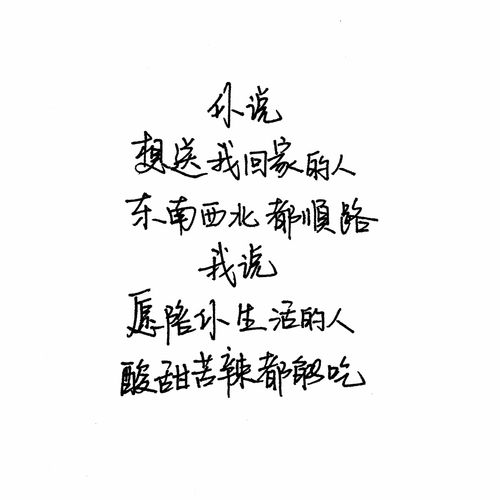 你说
想送我回家的人
东南西北都顺路
我说
愿陪你生活的人
酸甜苦辣都够吃